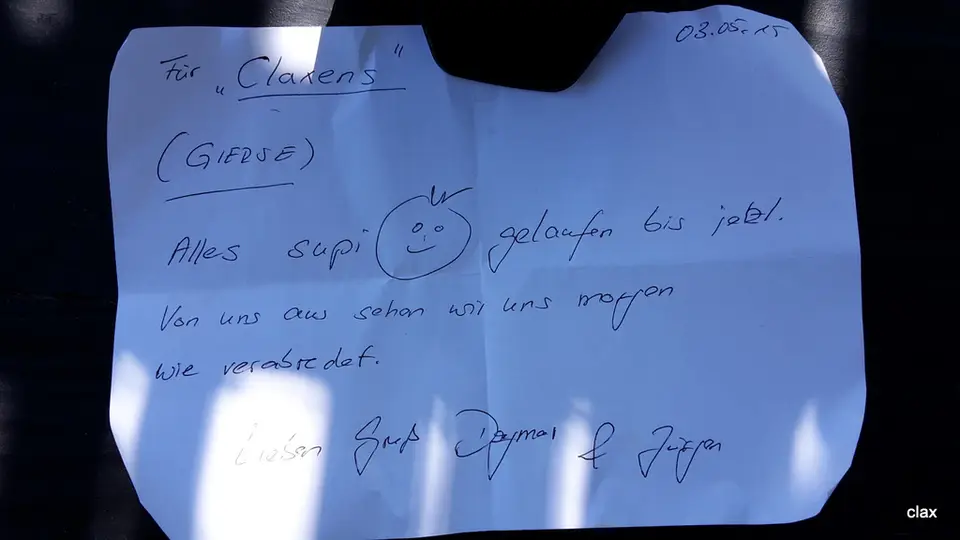 03.05.15
Für „Claxens“
(GIERSE)
Alles supi gelaufen bis jetzt.
Von uns aus sehen wir uns morgen
wie verabredet.
Lieben Gruß Dagmar & Jürgen
clax